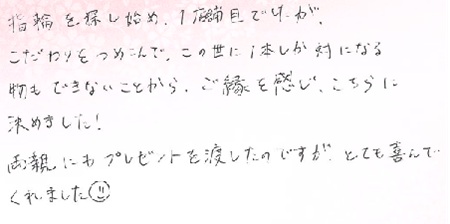 指輪を探し始め、1店舗目でしたが、
こだわりをつめこんで、この世に1本しか対になる
物もできないことから、ご縁を感じ、こちらに
決めました!
両親にもプレゼントを渡したのですが、とても喜んで
くれました